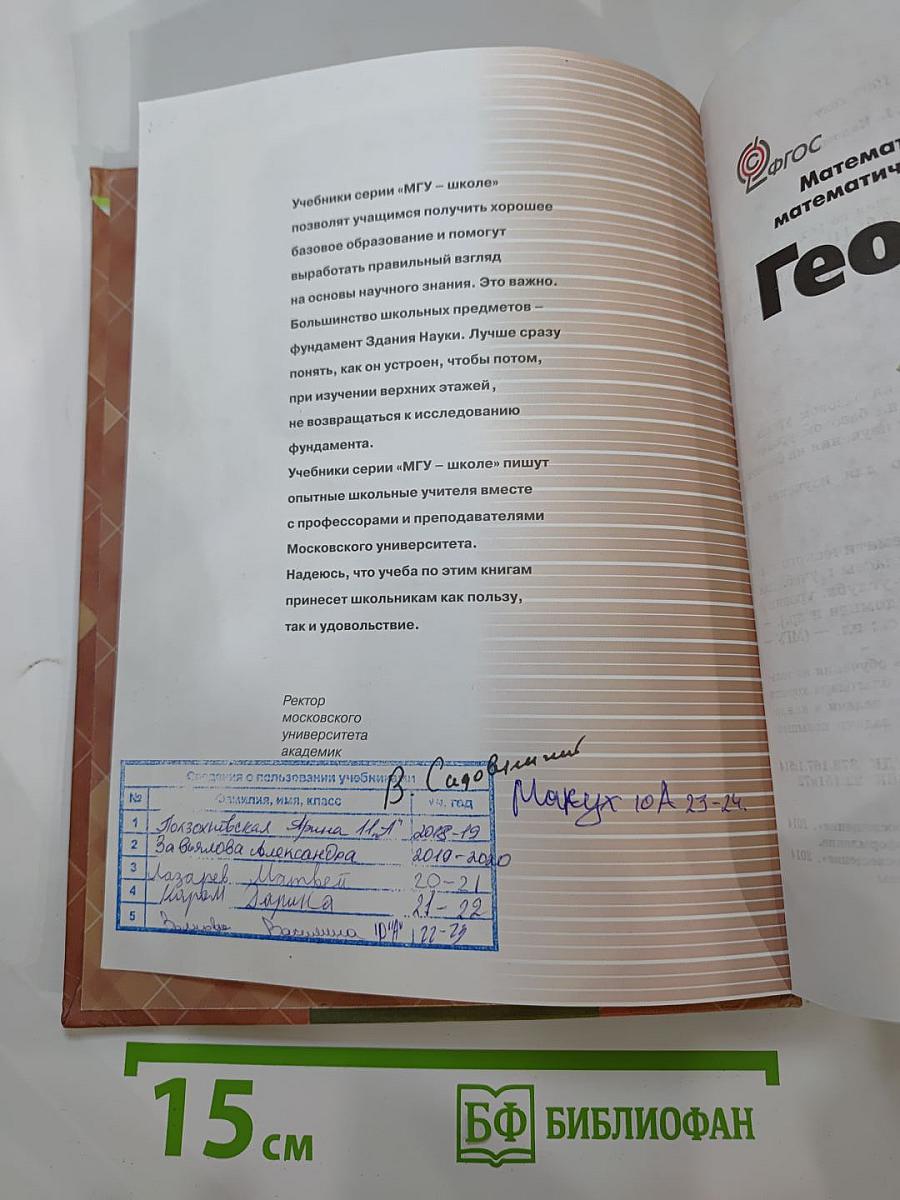 Учебники серии «МГУ – школе»
позволят учащимся получить хорошее
базовое образование и помогут
выработать правильный взгляд
на основы научного знания. Это важно.
Большинство школьных предметов –
фундамент Здания Науки. Лучше сразу
понять, как он устроен, чтобы потом,
при изучении верхних этажей,
не возвращаться к исследованию
фундамента.
Учебники серии «МГУ – школе» пишут
опытные школьные учителя вместе
с профессорами и преподавателями
Московского университета.
Надеюсь, что учеба по этим книгам
принесет школьникам как пользу,
так и удовольствие.
Ректор
московского
университета
академик
В. Садовничий
Сведения о пользовании учебниками
№ Фамилия, имя, класс уч. год
1 Арина 11„А" 2018-19
2 Завьялова Александра 2019-2020
3 Лазарев Матвей 20-21
4 Карам Дарина 21-22
5 Василина 10"А" 22-23
Макух 10А 23-24.
ФГОС
Математ
математич
Гео
15 см
БФ БИБЛИОФАН